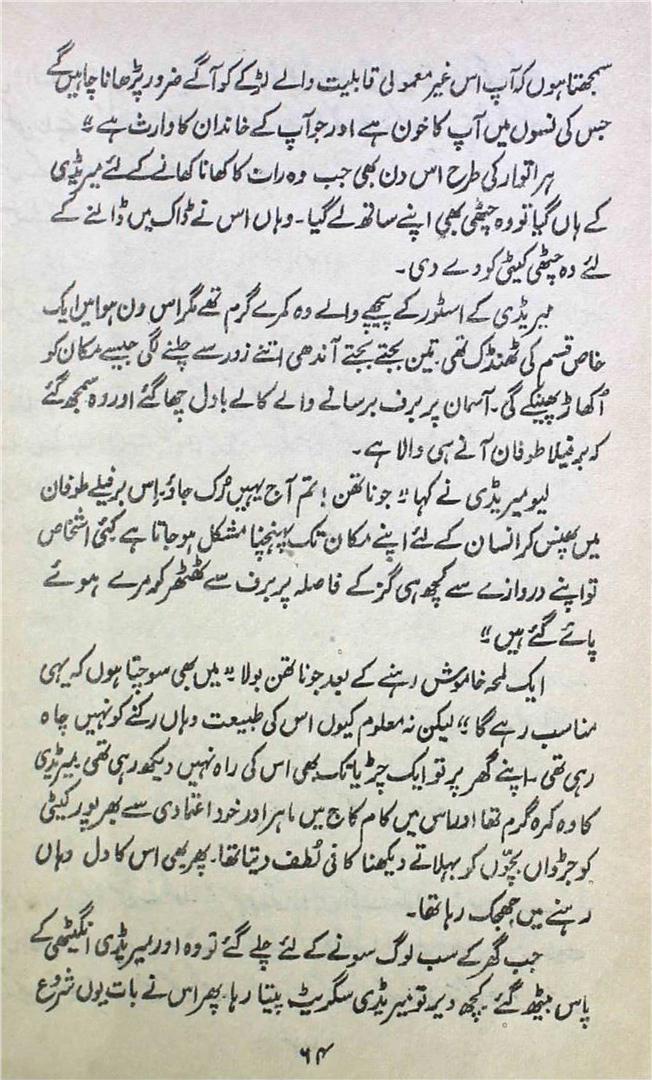 سمجھتا ہوں کہ آپ اس غیر معمولی قابلیت والے لڑکے کو آگے ضرور پڑھانا چاہیں گے
جس کی نسوں میں آپ کا خون ہے اور جو آپ کے خاندان کا وارث ہے"
ہر اتوار کی طرح اس دن بھی جب وہ رات کا کھانا کھانے کے لئے میریڈی
کے ہاں گیا تو وہ چٹھی بھی اپنے ساتھ لے گیا۔ وہاں اس نے ڈاک میں ڈالنے کے
لئے وہ چٹھی کیٹی کو دے دی۔
میریڈی کے اسٹور کے پیچھے والے وہ کمرے گرم تھے مگر اس دن ہوا میں ایک
خاص قسم کی ٹھنڈک تھی۔ تین بجتے بجتے آندھی اتنے زور سے چلنے لگی جیسے مکان کو
اُکھاڑ پھینکے گی۔ آسمان پر برف برسانے والے کالے بادل چھا گئے اور وہ سمجھ گئے
کہ برفیلا طوفان آنے ہی والا ہے۔
لیو میریڈی نے کہا "جوناتھن! تم آج یہیں رُک جاؤ۔ اِس برفیلے طوفان
میں پھنس کر انسان کے لئے اپنے مکان تک پہنچنا مشکل ہو جاتا ہے کئی اشخاص
تو اپنے دروازے سے کچھ ہی گز کے فاصلہ پر برف سے ٹھٹھر کر مرے ہوئے
پائے گئے ہیں"
ایک لمحہ خاموش رہنے کے بعد جوناتھن بولا "میں بھی سوچتا ہوں کہ یہی
مناسب رہے گا" لیکن نہ معلوم کیوں اس کی طبیعت وہاں رکنے کو نہیں چاہ
رہی تھی۔ اپنے گھر پر تو ایک چڑیا تک بھی اس کی راہ نہیں دیکھ رہی تھی۔ میریڈی
کا وہ کمرہ گرم تھا اور اس میں کام کاج میں ماہر اور خود اعتمادی سے بھرپور کیٹی
کو جڑواں بچّوں کو بہلاتے دیکھنا کافی لُطف دیتا تھا۔ پھر بھی اس کا دل وہاں
رہنے میں جھجک رہا تھا۔
جب گھر کے سب لوگ سونے کے لئے چلے گئے تو وہ اور میریڈی انگیٹھی کے
پاس بیٹھ گئے۔ کچھ دیر تو میریڈی سگریٹ پیتا رہا۔ پھر اس نے بات یوں شروع
۶۴